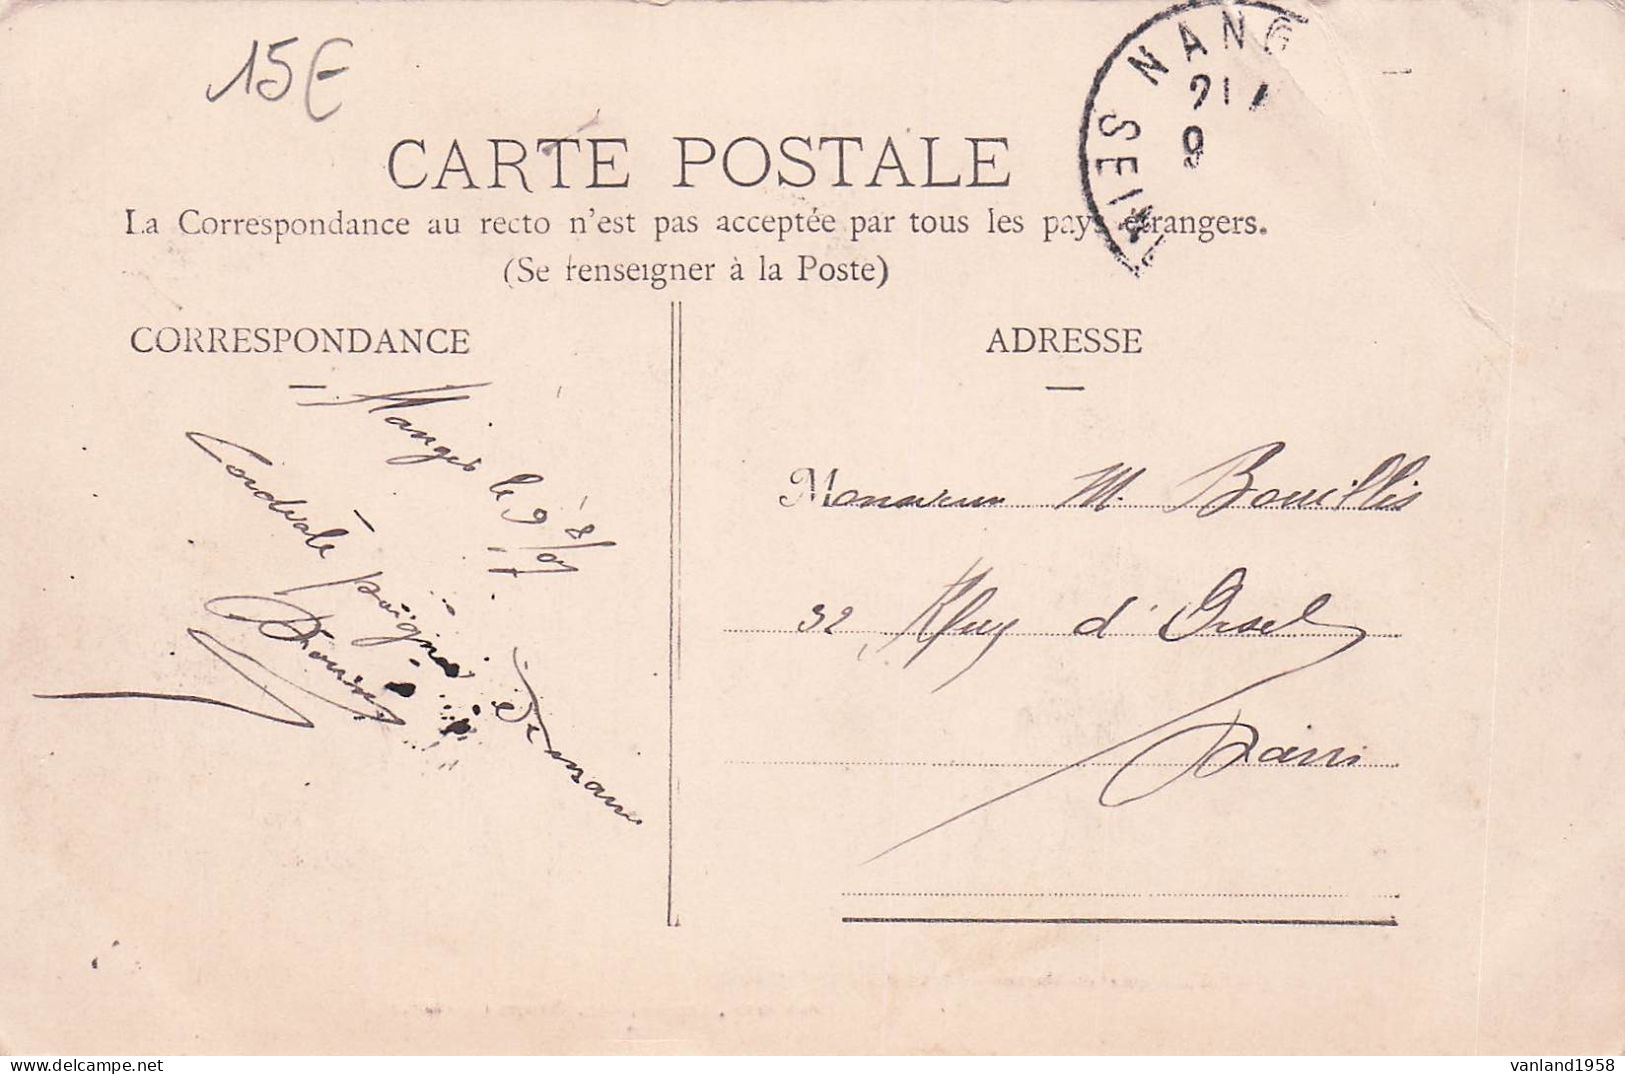 15€
NANG
21
9
SEIN
CARTE POSTALE
La Correspondance au recto n'est pas acceptée par tous les pays étrangers.
(Se renseigner à la Poste)
CORRESPONDANCE
ADRESSE
Nangis le 9/8/07
Cordiale poignée
Monsieur M. Bouillis
32 d'Orsel
Paris
carte postale
vanland1958